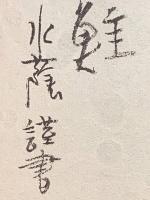 水蔭謹書